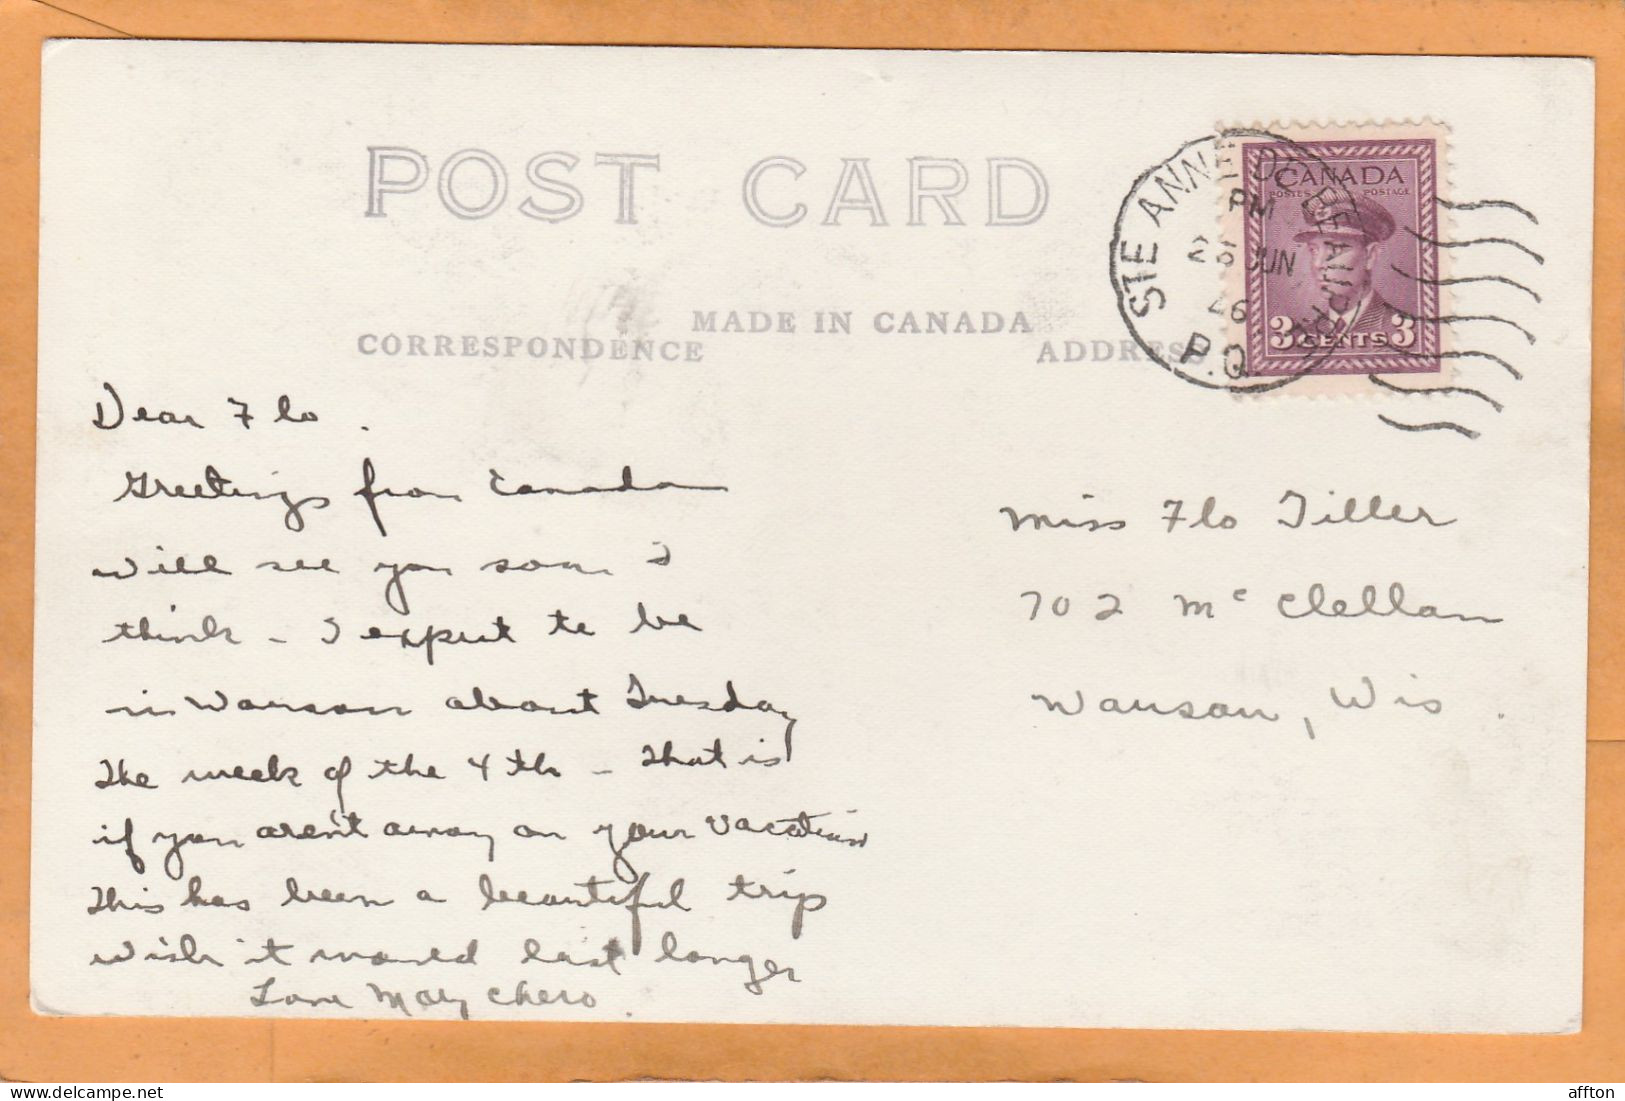 POST CARD
CANADA
POSTES POSTAGE
3 CENTS 3
STE ANNE DE BEAUPRE
PM
JUN
46
P.Q.
MADE IN CANADA
CORRESPONDENCE
ADDRESS
Dear Flo.
Greetings from Canada
will see you soon I
think - I expect to be
in Wausau about Tuesday
the week of the 4th - That is
if you aren't away on your vacation
This has been a beautiful trip
Wish it would last longer
Love Mary
Miss Flo Tiller
702 McClellan
Wausau, Wis.
affton